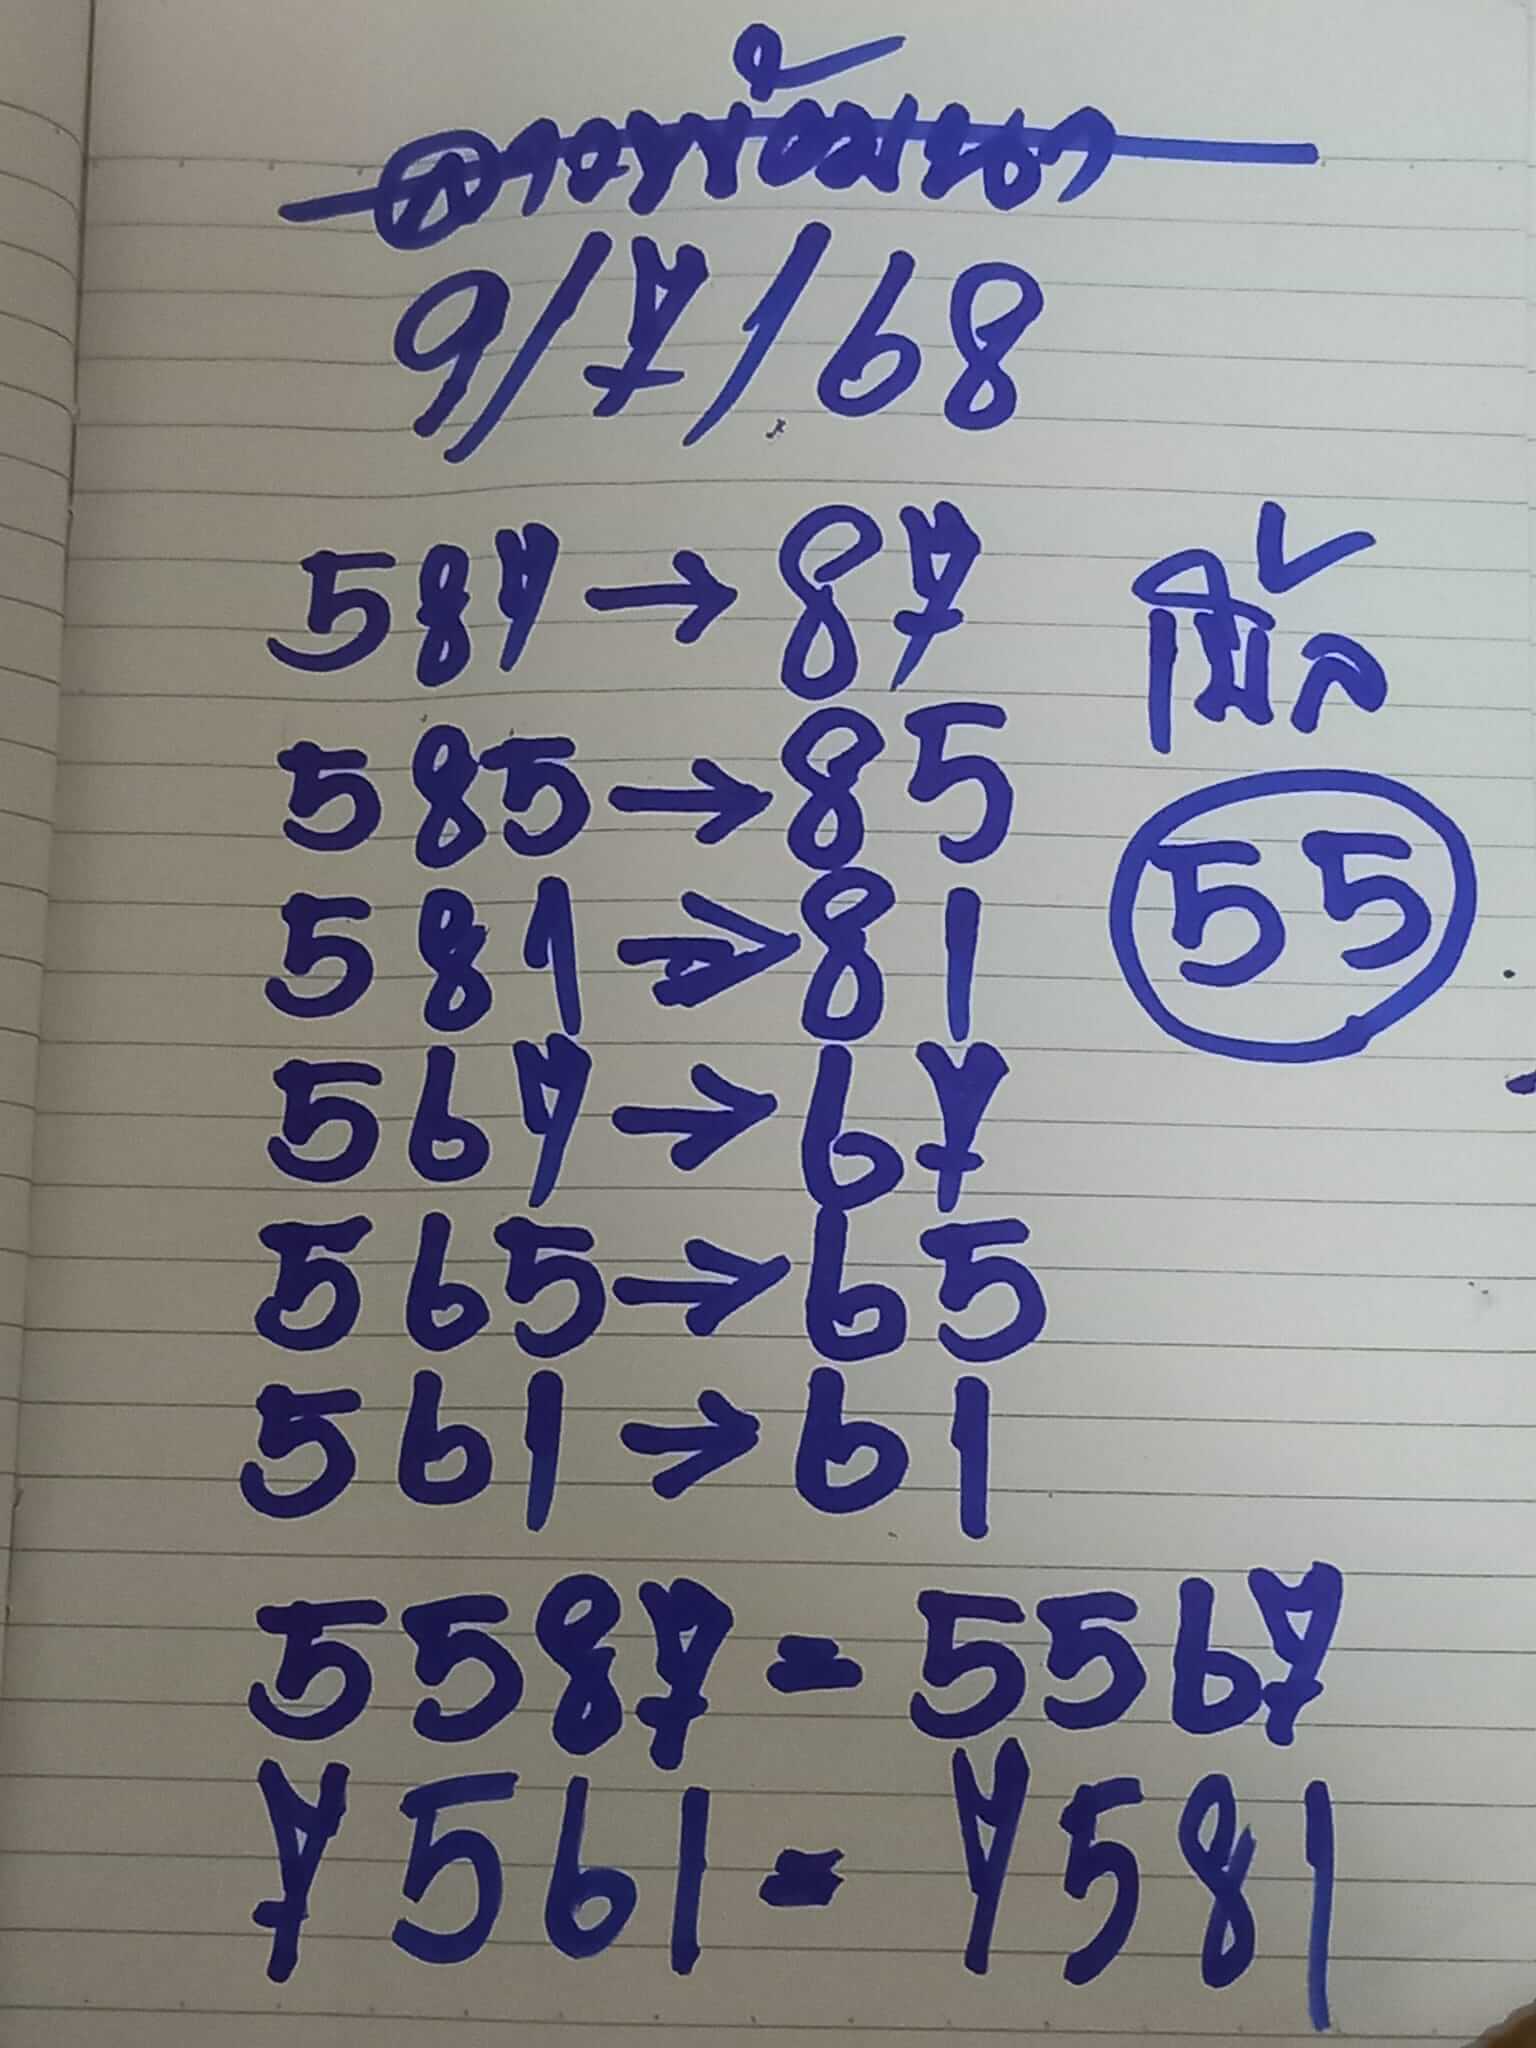 9/7/68
587→87
เบิ้ล
585→85
55
581→81
567→67
565→65
561→61
5587=5567
7561=7581